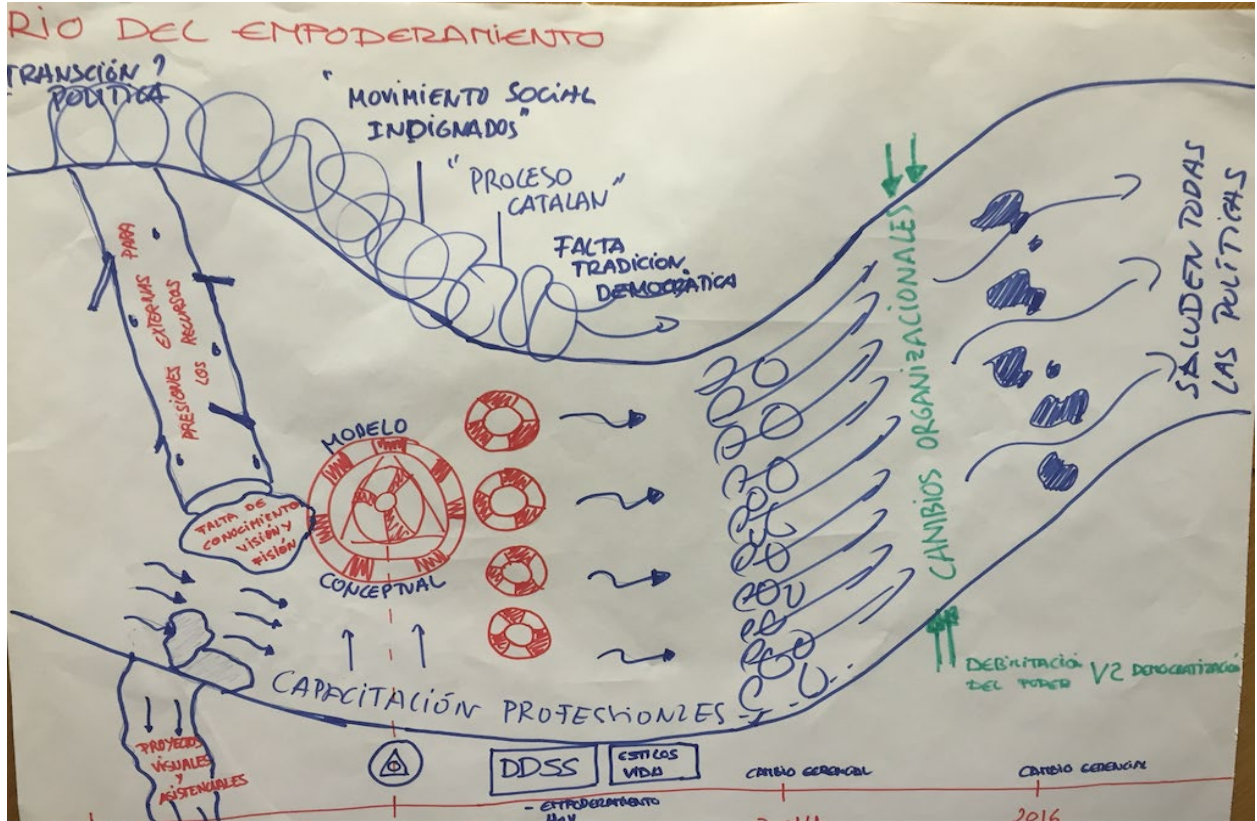 RIO DEL EMPODERAMIENTO
TRANSCIÓN ?
POLITICA
"MOVIMIENTO SOCIAL
INDIGNADOS"
"PROCESO
CATALAN"
FALTA
TRADICION
DEMOCRÀTICA
PRESIONES EXTERNAS PARA
LOS RECURSOS
FALTA DE
CONOCIMIENTO
VISIÓN Y
MISIÓN
MODELO
CONCEPTUAL
CAMBIOS ORGANIZACIONALES
SALUD EN TODAS
LAS POLÍTICAS
DEBILITACIÓ
DEL PODER
VS DEMOCRATIZACIÓN
CAPACITACIÓN PROFESIONALES
PROYECTOS
VISUALES
Y
ASISTENCIALES
DDSS
ESTILOS
VIDA
CAMBIO GERENCIAL
CAMBIO GERENCIAL
- EMPODERAMIENTO
2016